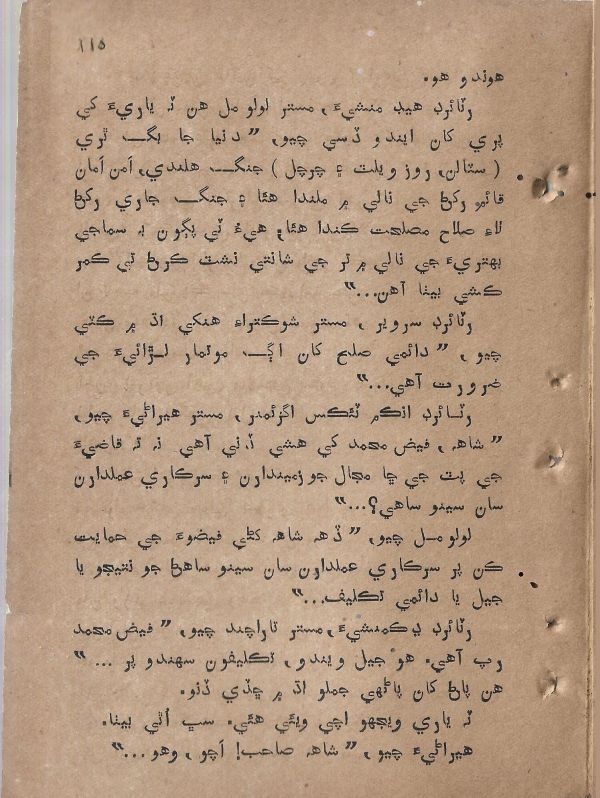 ١١٥
هوندو هو.
رٽائرڊ هيڊ منشيءَ، مسٽر لولو مل هن ٽہ ياريءَ کي
پري کان ايندو ڏسي چيو، ”دنيا جا بگ ٿري
(سٽالن، روز ويلٽ ۽ چرچل) جنگ هلندي، اَمن اَمان
قائم رکڻ جي نالي ۾ ملندا هئا ۽ جنگ جاري رکڻ
لاءِ صلاح مصلحت ڪندا هئا، هيءُ ٽي پڳون بہ سماجي
بهتريءَ جي نالي ۾ ٿر جي شانتي نشت ڪرڻ تي ڪمر
ڪشي بيٺا آهن...“
رٽائرڊ سرویر، مسٽر شوڪتراءِ هنکي اڌ ۾ ڪٽي
چيو، ”دائمي صلح کان اڳ موتمار لڙائيءَ جي
ضرورت آهي...“
رٽائرڊ انڪم ٽئڪس اگزئمنر، مسٽر هيراڻيءَ چيو،
”شاهہ، فيض محمد کي هشي ڏني آهي نہ تہ قاضيءَ
جي پٽ جي ڇا مجال جو زميندارن ۽ سرڪاري عملدارن
سان سينو ساهي؟...“
لولو مل چيو، ”ڏهہ شاهہ کڻي فيضوءَ جي حمايت
ڪن پر سرڪاري عملدارن سان سينو ساهڻ جو نتيجو يا
جيل يا دائمي تڪليف...“
رٽائرڊ ڊڪمنشيءَ، مسٽر تاراچند چيو، ”فيض محمد
رپ آهي. هو جيل ويندو، تڪليفون سهندو پر ...“
هن پاڻ کان پاڻهي جملو اڌ ۾ ڇڏي ڏنو.
ٽہ ياري ويجهو اچي ويئي هئي. سڀ اُٿي بيٺا.
هيراڻيءَ چيو، ”شاهہ صاحب! اَچو، وهو...“